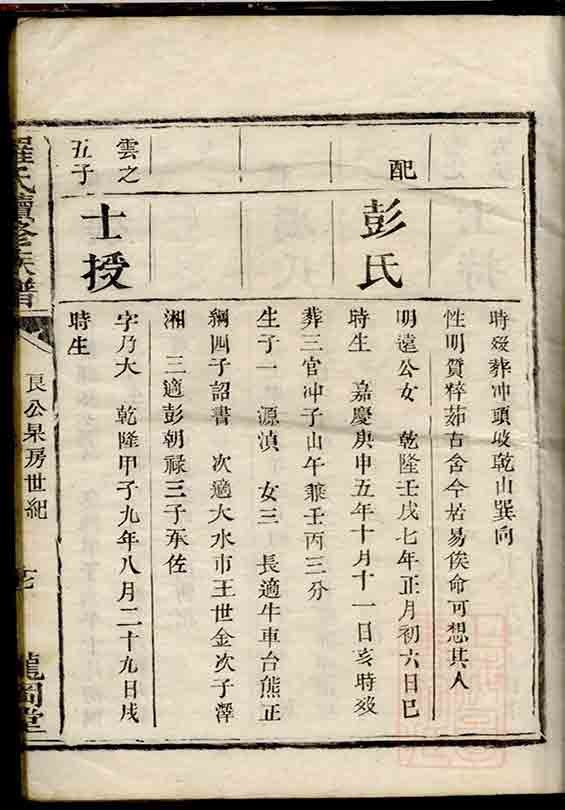 時歿葬冲頭坡乾山巽向
性明質粹茹古含今居易俟命可想其人
配
彭氏
明遠公女 乾隆壬戌七年正月初六日巳
時生 嘉慶庚申五年十月十一日亥時歿
葬三官冲子山午兼壬丙三分
生子一 源滇 女三 長適牛車台熊正
綱四子詔書 次適大水市王世金次子澤
湘 三適彭朝祿三子东佐
雲之
五子
士授
字乃大 乾隆甲子九年八月二十九日戌
時生
羅氏續修族譜
良公杲房世紀